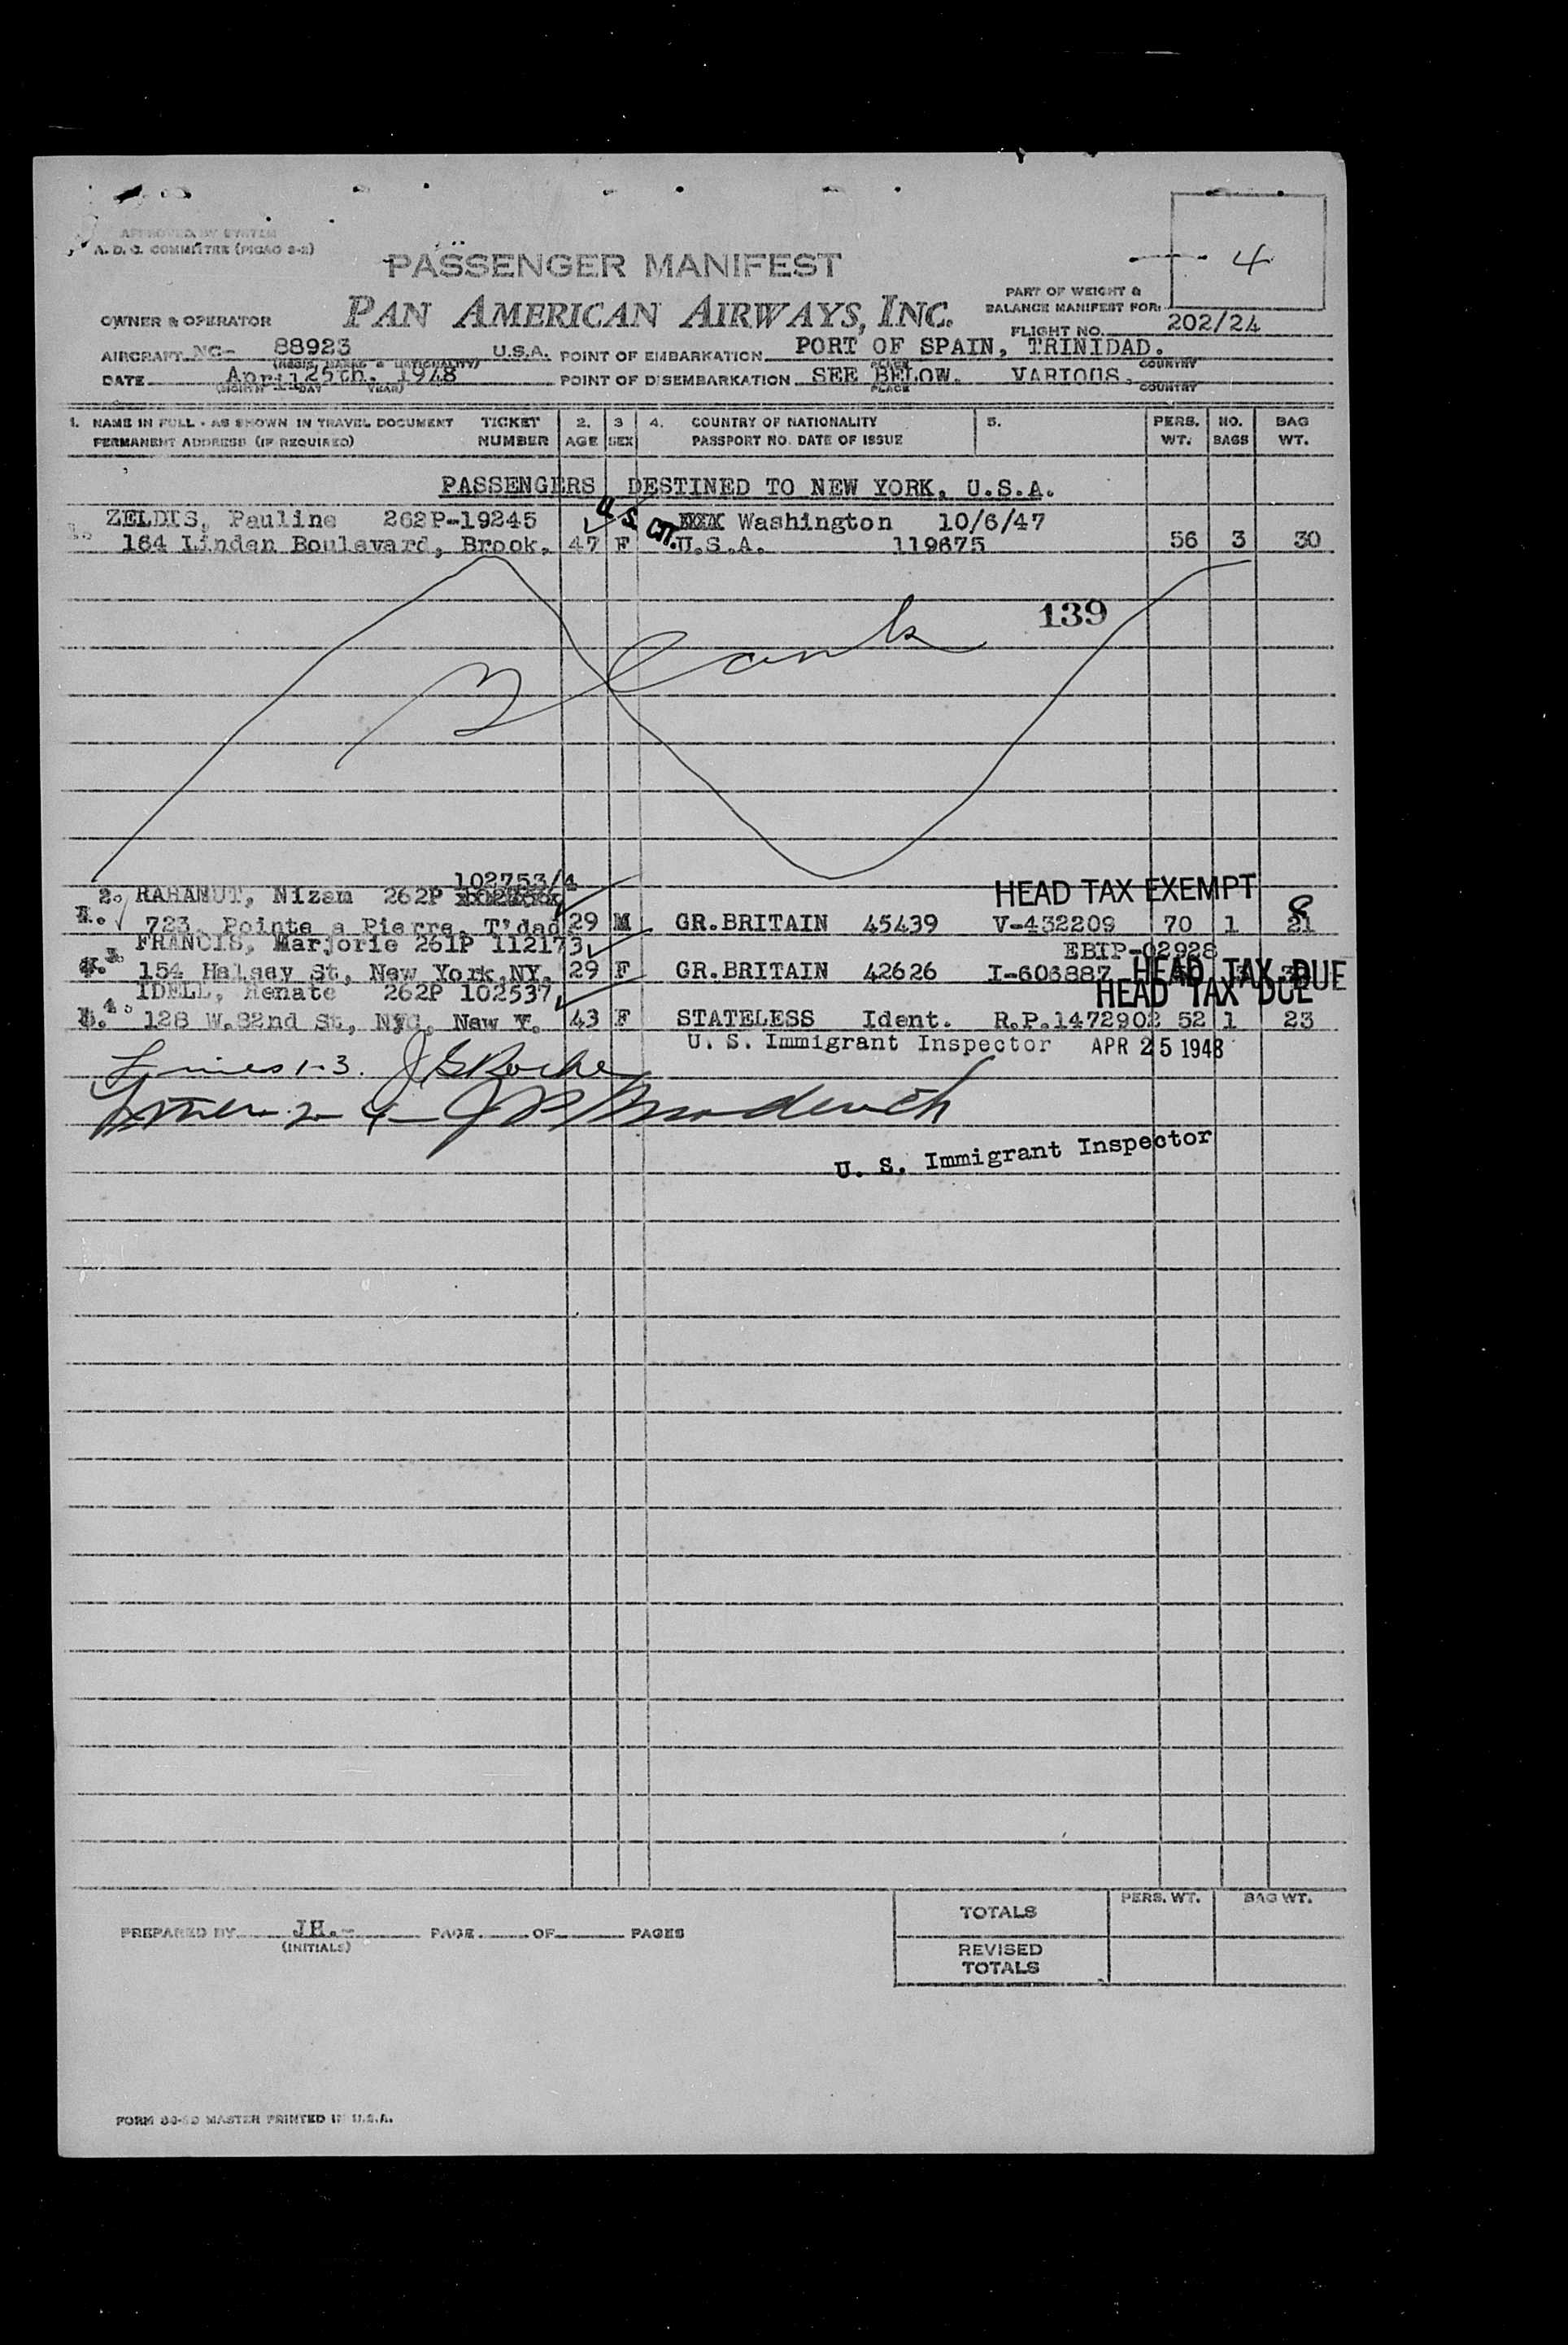 APPROVED BY SYSTEM
A. D. C. COMMITTEE (PICAO 3-2)
4
PASSENGER MANIFEST
PART OF WEIGHT &
BALANCE MANIFEST FOR:
OWNER & OPERATOR PAN AMERICAN AIRWAYS, INC.
FLIGHT NO. 202/24
AIRCRAFT NC- 88923 U.S.A. POINT OF EMBARKATION PORT OF SPAIN, TRINIDAD.
(REGIS. MARKS & NATIONALITY) PLACE COUNTRY
DATE April 25th. 1948 POINT OF DISEMBARKATION SEE BELOW. VARIOUS.
(MONTH DAY YEAR) PLACE COUNTRY
1. NAME IN FULL - AS SHOWN IN TRAVEL DOCUMENT TICKET 2. 3 4. COUNTRY OF NATIONALITY 5. PERS. NO. BAG
PERMANENT ADDRESS (IF REQUIRED) NUMBER AGE SEX PASSPORT NO. DATE OF ISSUE WT. BAGS WT.
PASSENGERS DESTINED TO NEW YORK, U.S.A.
U. S. CIT.
ZELDIS, Pauline 262P-19245 Washington 10/6/47
1. 164 Linden Boulevard, Brook. 47 F U.S.A. 119675 56 3 30
139
Blank
102753/4
2. RAHAMUT, Nizam 262P HEAD TAX EXEMPT
723, Pointe a Pierre, T'dad 29 M GR.BRITAIN 45439 V-432209 70 1 21
FRANCIS, Marjorie 261P 112173 EBIP-02928
3. 154 Halsey St, New York,NY. 29 F GR.BRITAIN 42626 I-606887 HEAD TAX DUE
IDELL, Renate 262P 102537 HEAD TAX DUE
4. 128 W.82nd St, NYC, New Y. 43 F STATELESS Ident. R.P.1472902 52 1 23
U. S. Immigrant Inspector APR 25 1948
Lines 1-3. J G Roche
U. S. Immigrant Inspector
PREPARED BY JH.- PAGE OF PAGES
(INITIALS)
PERS. WT. BAG WT.
TOTALS
REVISED
TOTALS
MASTER PRINTED IN U.S.A.